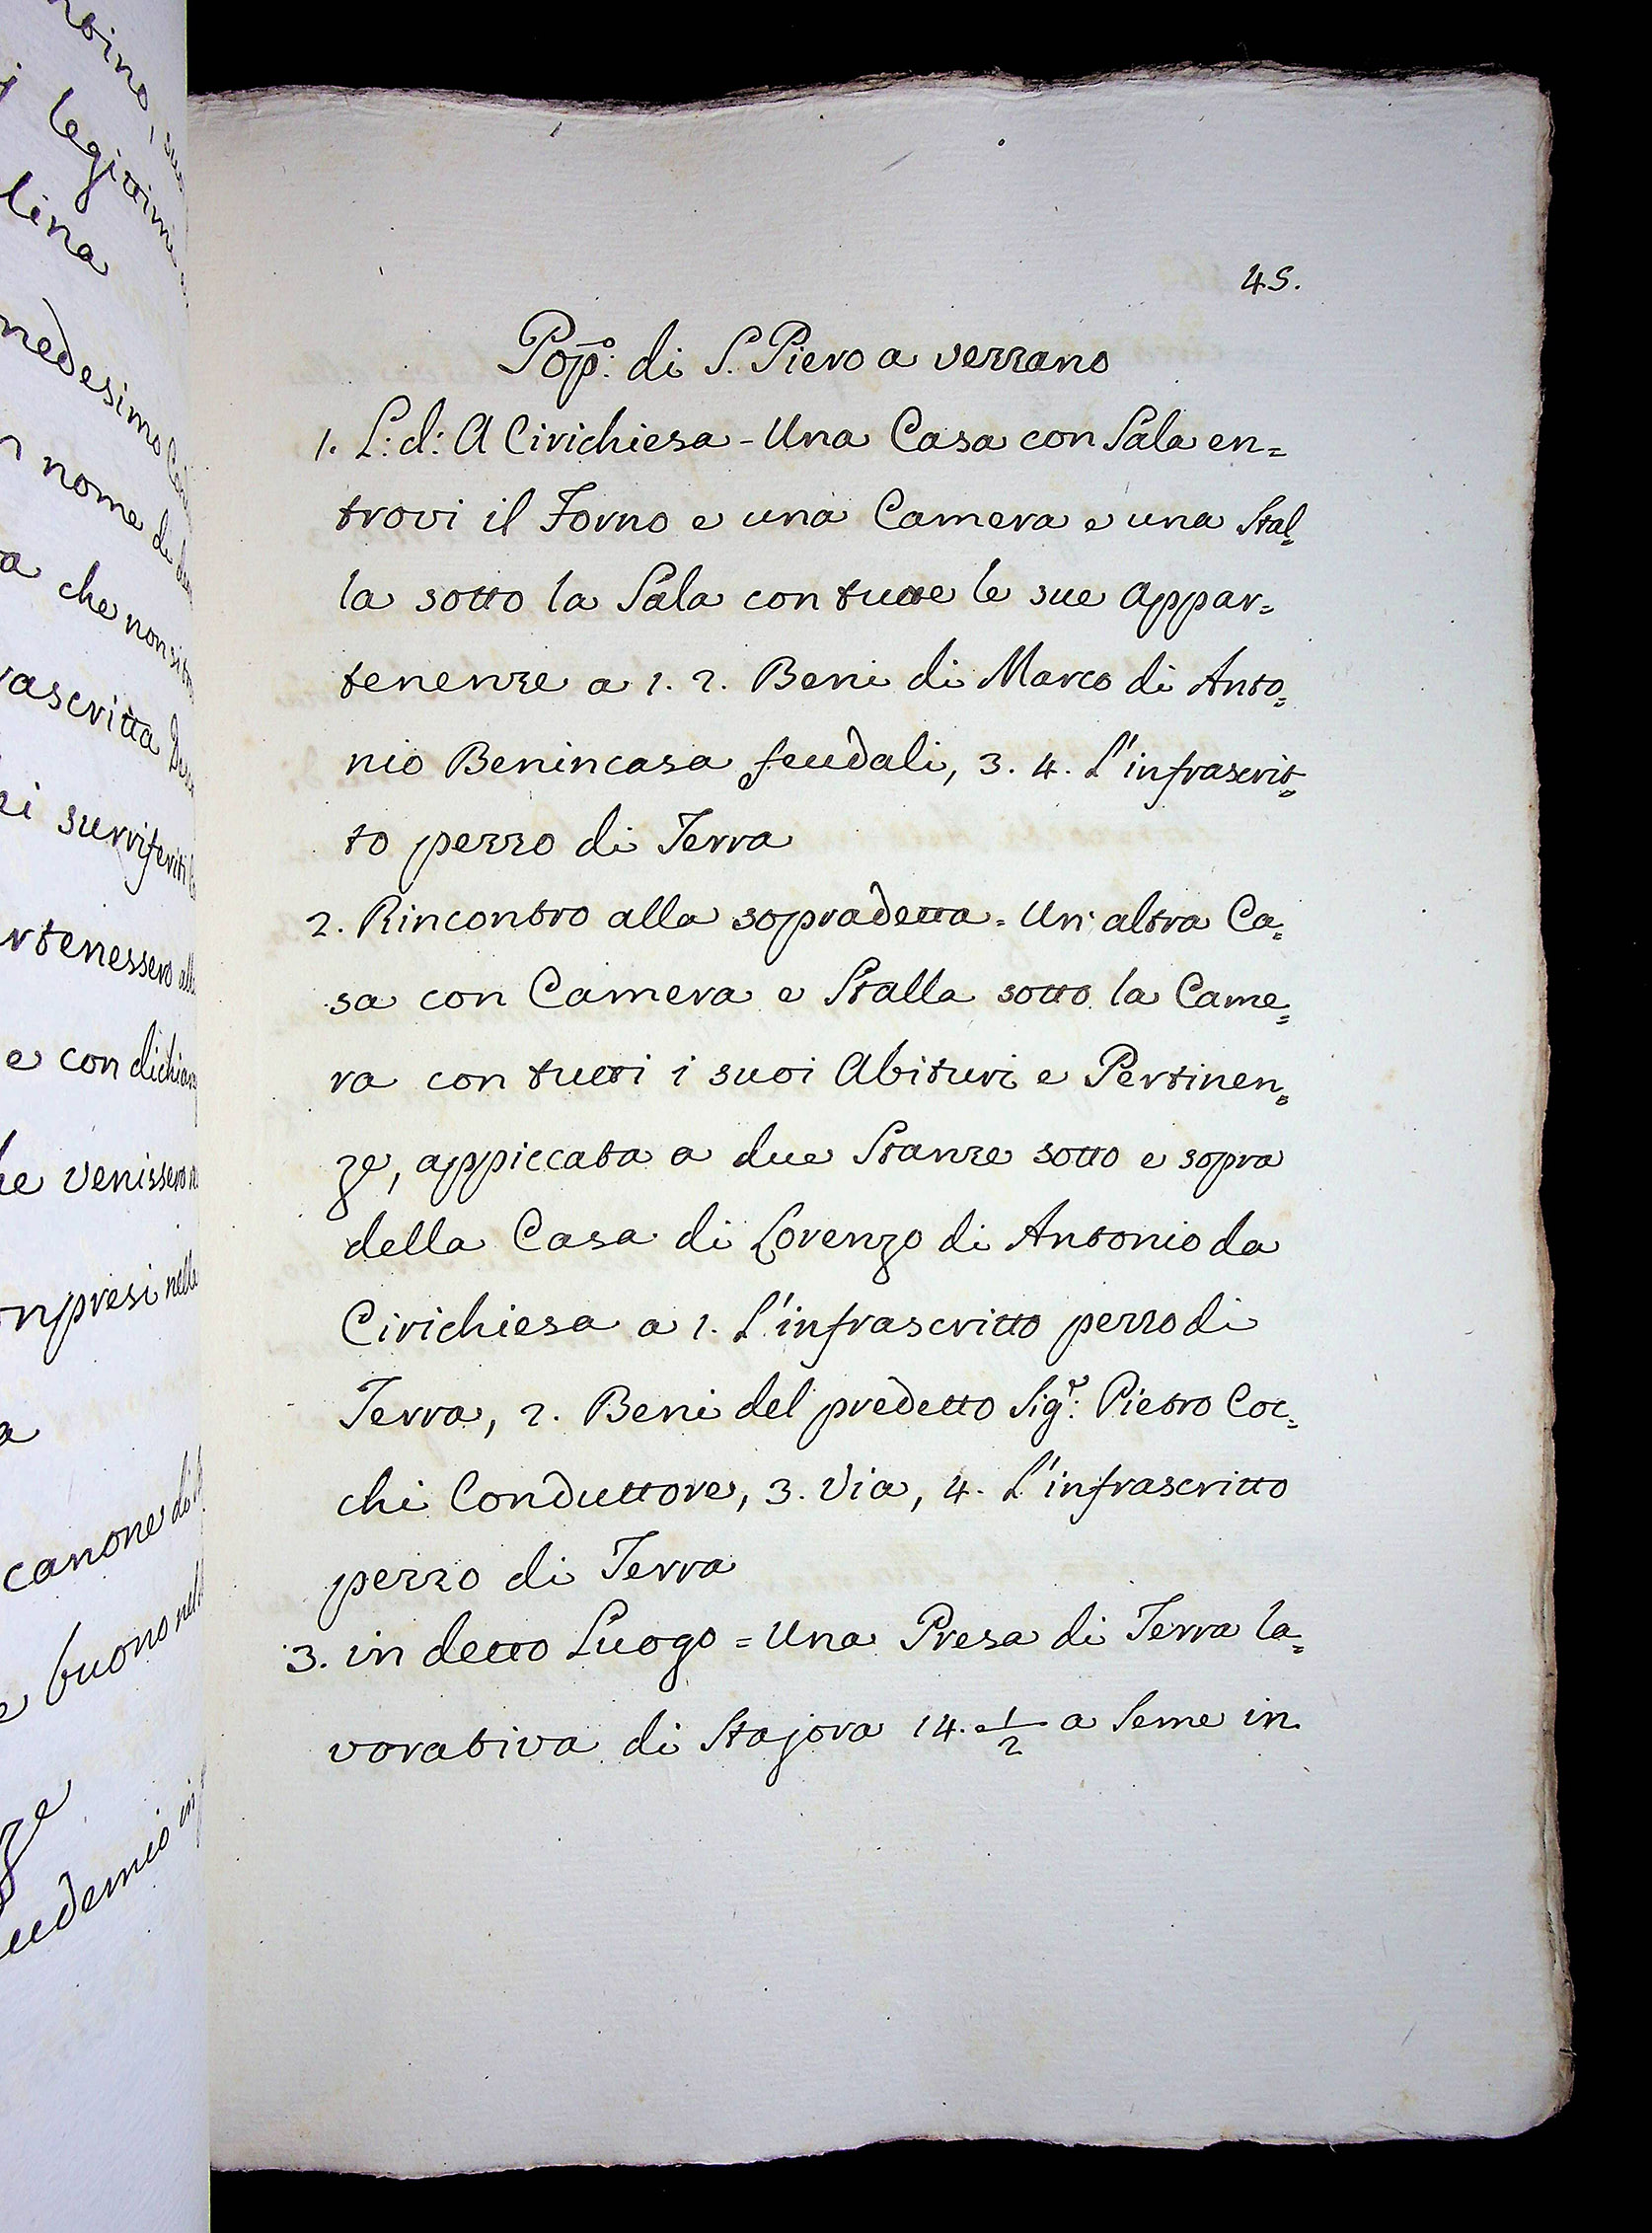 45.
Pop̄º: di S. Piero a verzano
1. L: d: A Cirichiesa - Una Casa con Sala en=
trovi il Forno e una Camera e una Stal=
la sotto la Sala con tutte le sue appar=
tenenze a 1. 2. Beni di Marco di Anto=
nio Benincasa feudali, 3. 4. L'infrascrit=
to pezzo di Terra
2. Rincontro alla sopradetta = Un'altra Ca=
sa con Camera e Stalla sotto la Came=
ra con tutti i suoi Abituri e Pertinen=
ze, appiccata a due Stanze sotto e sopra
della Casa di Lorenzo di Antonio da
Cirichiesa a 1. L'infrascritto pezzo di
Terra, 2. Beni del predetto Sigr: Pietro Coc=
chi Conduttore, 3. Via, 4. L'infrascritto
pezzo di Terra
3. in detto Luogo = Una Presa di Terra la=
vorativa di Stajora 14. 1/2 a Seme in
legittimi
lina
medesimo
nome di
a che non si
rascritta
i surriferiti
rtenessero
e con
he venissero
mpresi
a
canone di
e buono
ze
udemio in